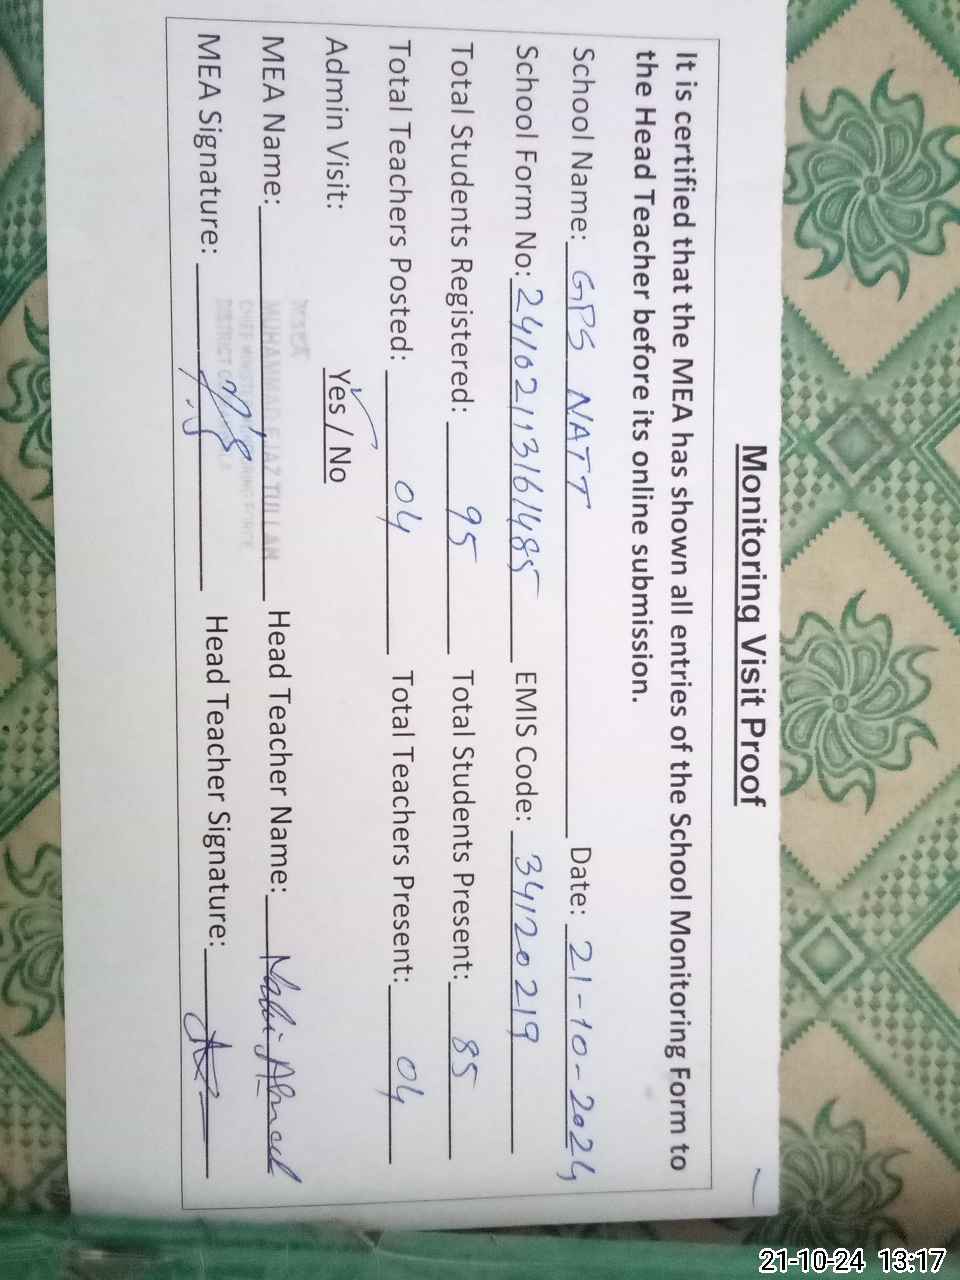 Monitoring Visit Proof
It is certified that the MEA has shown all entries of the School Monitoring Form to
the Head Teacher before its online submission.
School Name: GPS NATT Date: 21-10-2024
School Form No: 24102113161485 EMIS Code: 34120219
Total Students Registered: 95 Total Students Present: 85
Total Teachers Posted: 04 Total Teachers Present: 04
Admin Visit: Yes / No
MEA Name: MUHAMMAD EJAZ Head Teacher Name: Nabi Ahmed
MEA Signature: Head Teacher Signature:
21-10-24 13:17